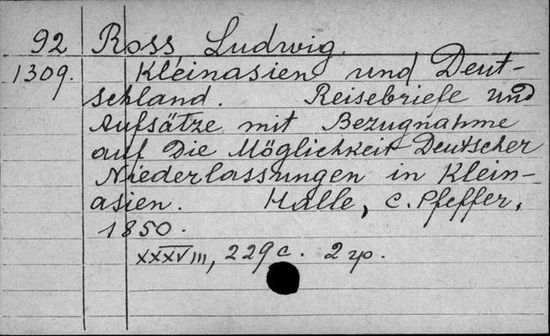 92 Ross, Ludwig.
1309. Kleinasien und Deut-
schland. Reisebriefe und
Aufsätze mit Bezugnahme
auf Die Möglichkeit Deutscher
Niederlassungen in Klein-
asien. Halle, C. Pfeffer,
1850.
XXXVIII, 229 c. 2 гр.